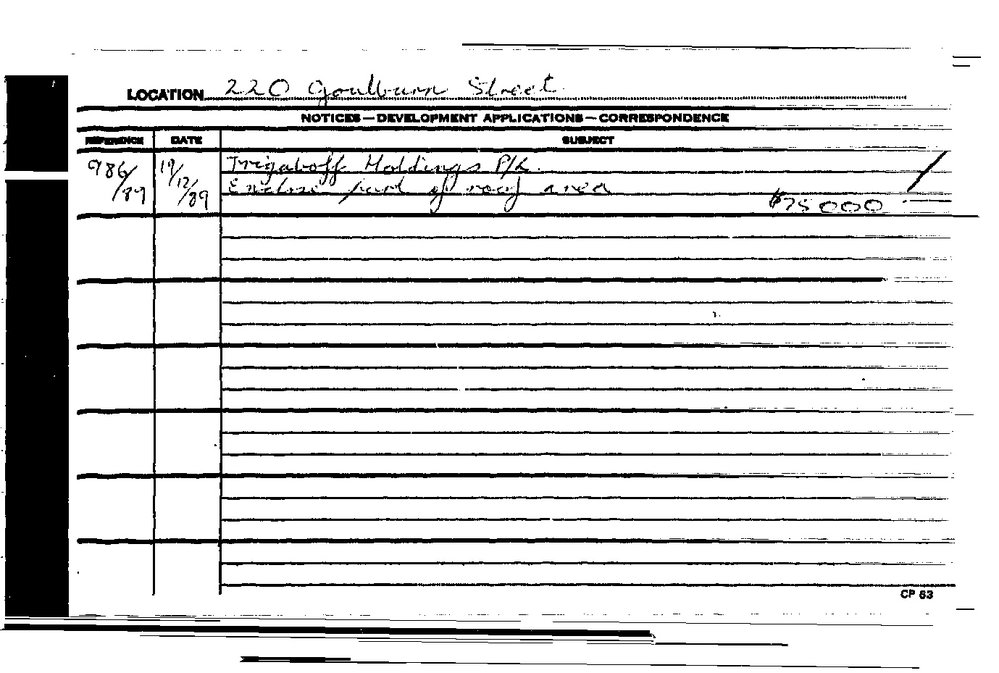 LOCATION 220 Goulburn Street
NOTICES—DEVELOPMENT APPLICATIONS—CORRESPONDENCE
REFERENCE DATE SUBJECT
986/89 19/12/89 Trigaboff Holdings P/L.
Enclose part of roof area
$75 000
CP 63